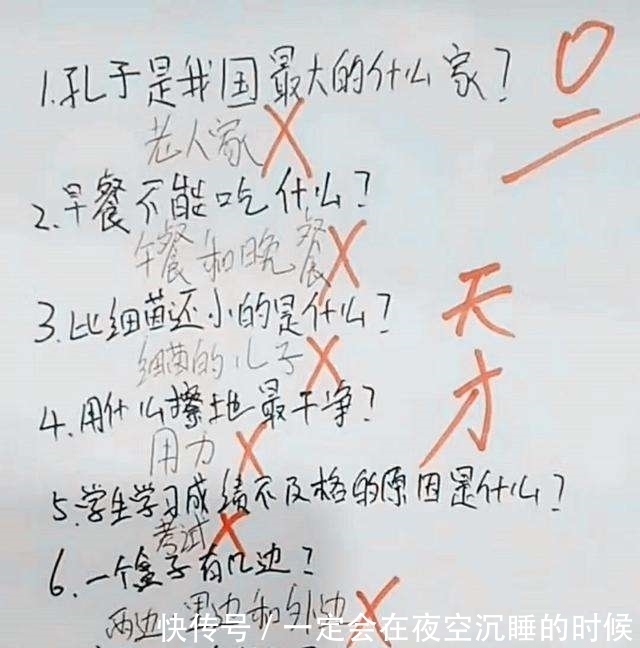 1.孔子是我国最大的什么家?
老人家
2.早餐不能吃什么?
午餐和晚餐
3.比细菌还小的是什么?
细菌的儿子
4.用什么擦地最干净?
用力
5.学生学习成绩不及格的原因是什么?
考试
6.一个盒子有几边?
两边 里边和外边
0
天才
快传号/一定会在夜空沉睡的时候